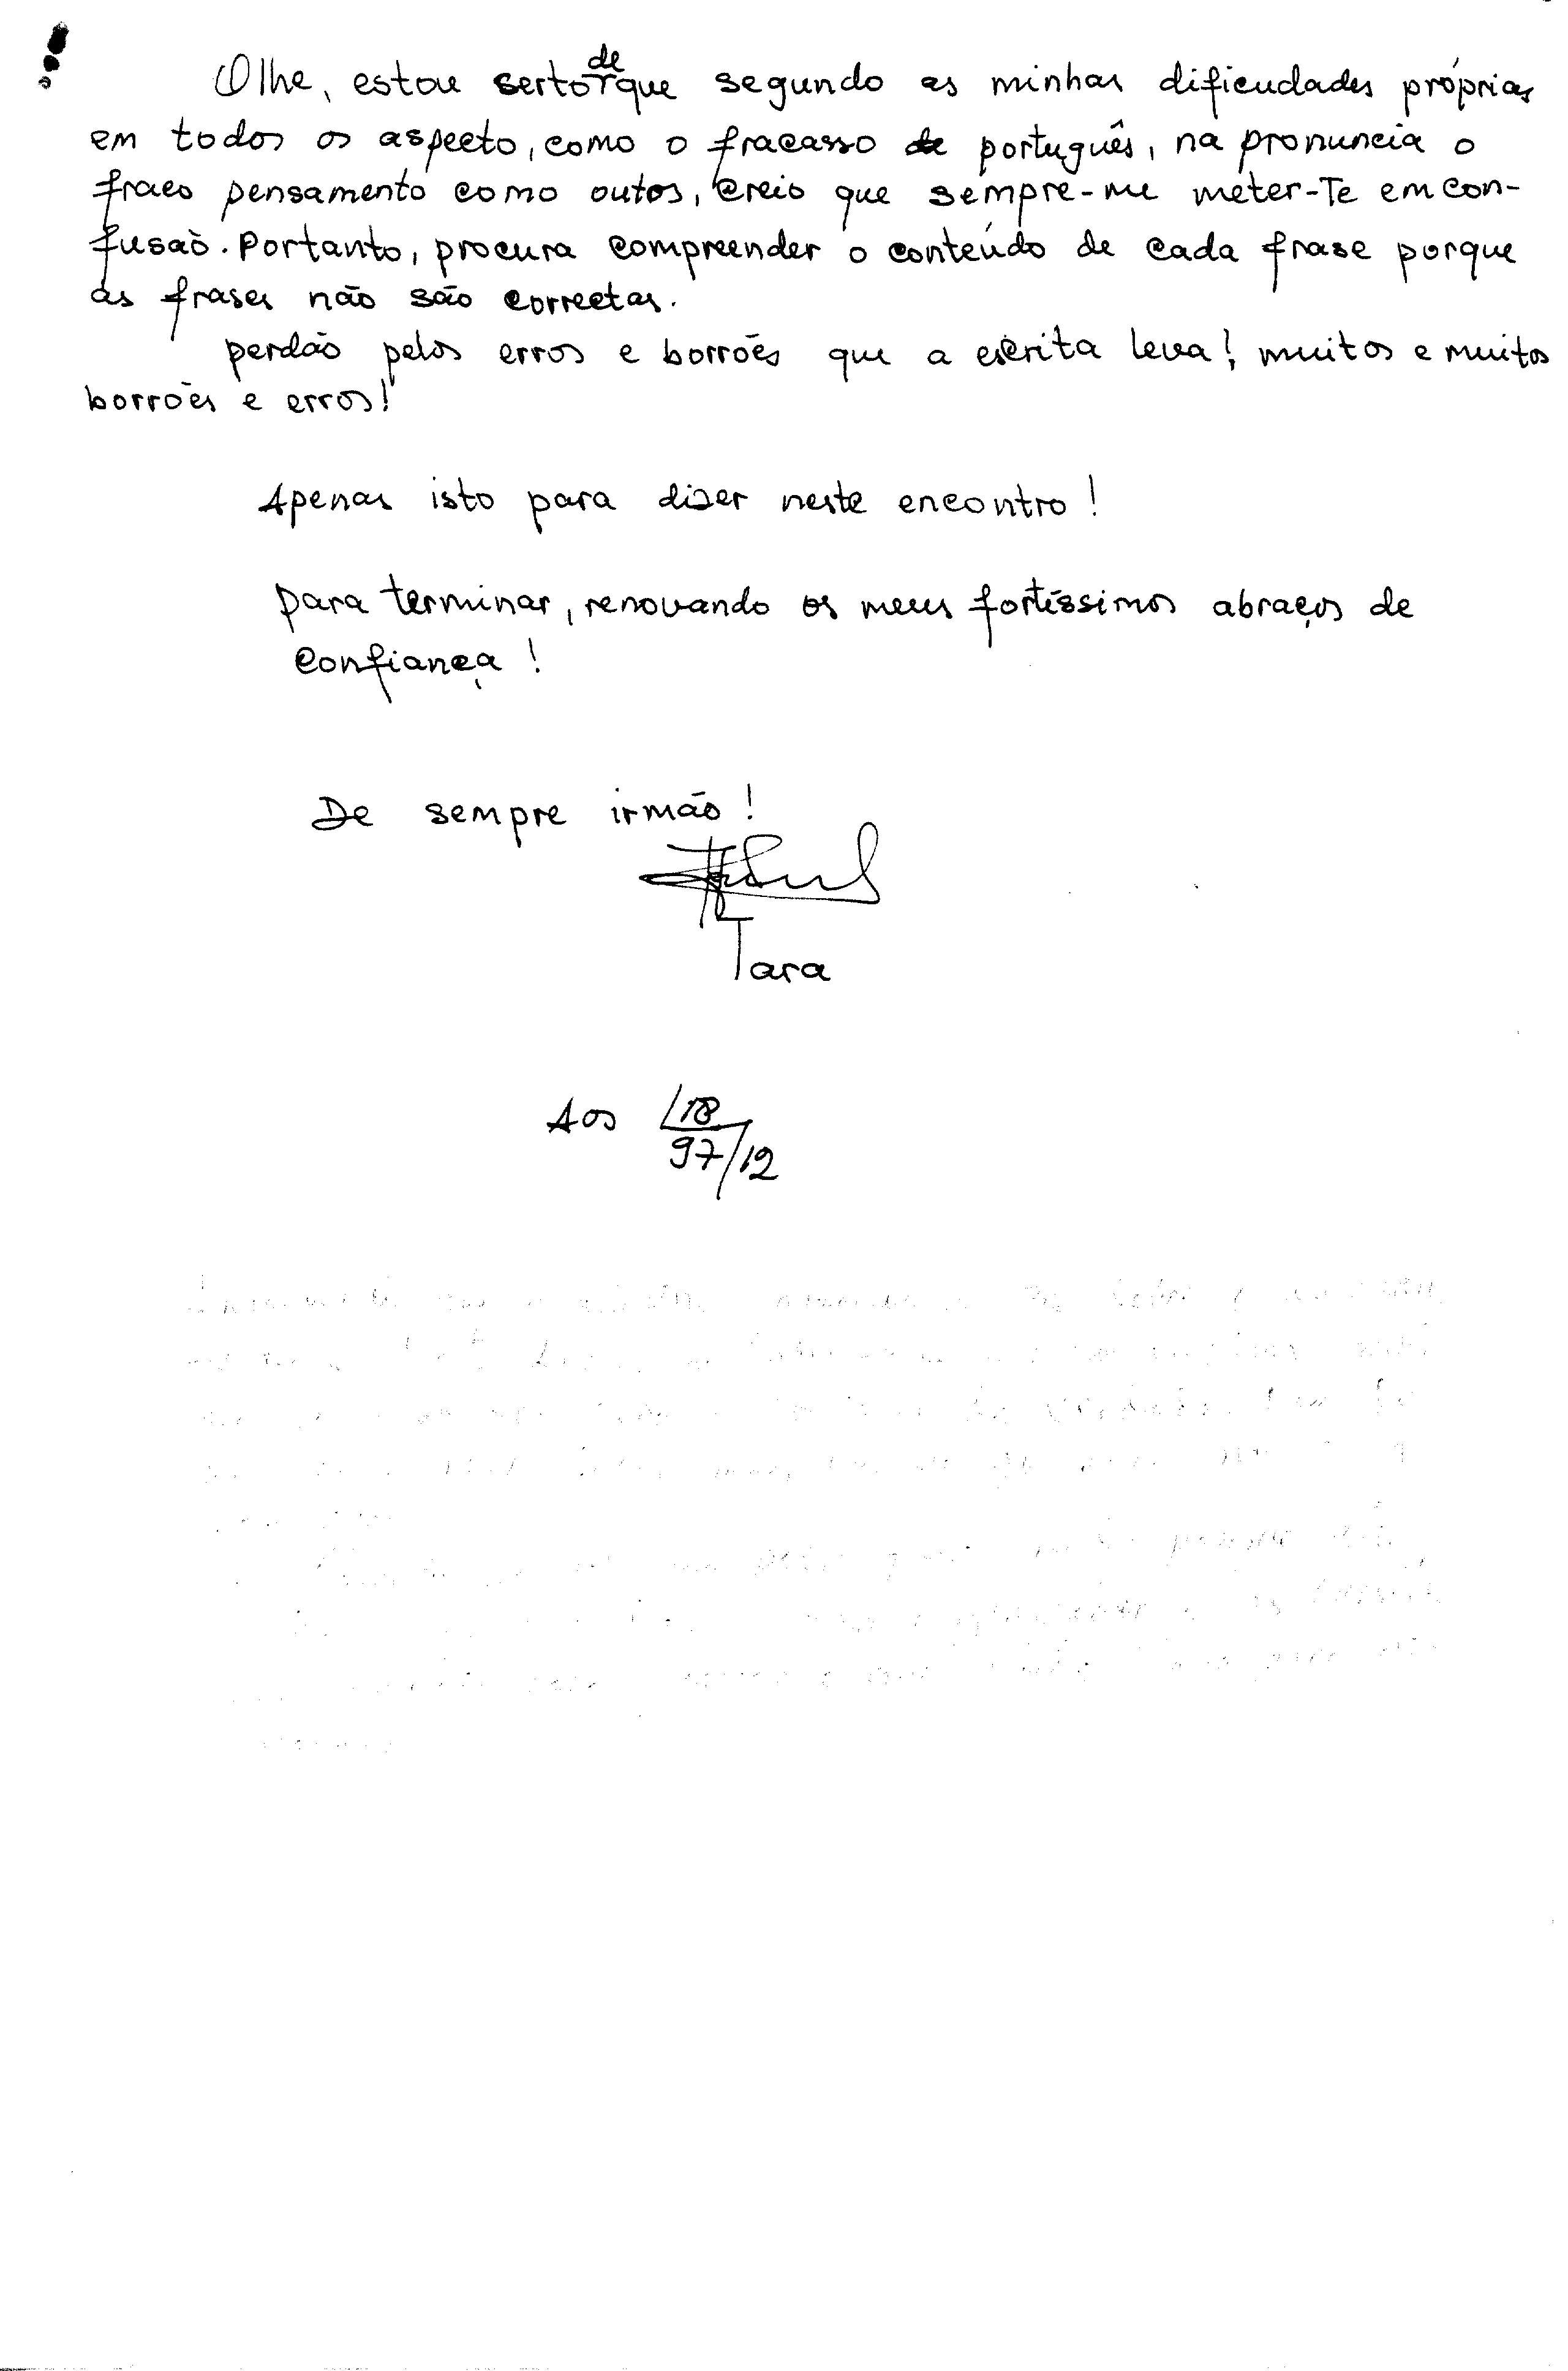 Olhe, estou serto de que segundo as minhas dificudades próprias
em todos os aspecto, como o fracasso de português, na pronuncia o
fraco pensamento como outos, creio que sempre-me meter-Te em con-
fusaõ. Portanto, procura compreender o conteúdo de cada frase porque
as frases não são correctas.
perdão pelos erros e borrões que a escrita leva!, muitos e muitos
borrões e erros!
Apenas isto para dizer neste encontro!
para terminar, renovando os meus fortíssimos abraços de
confiança!
De sempre irmão!
Tara
Aos 18
97/12